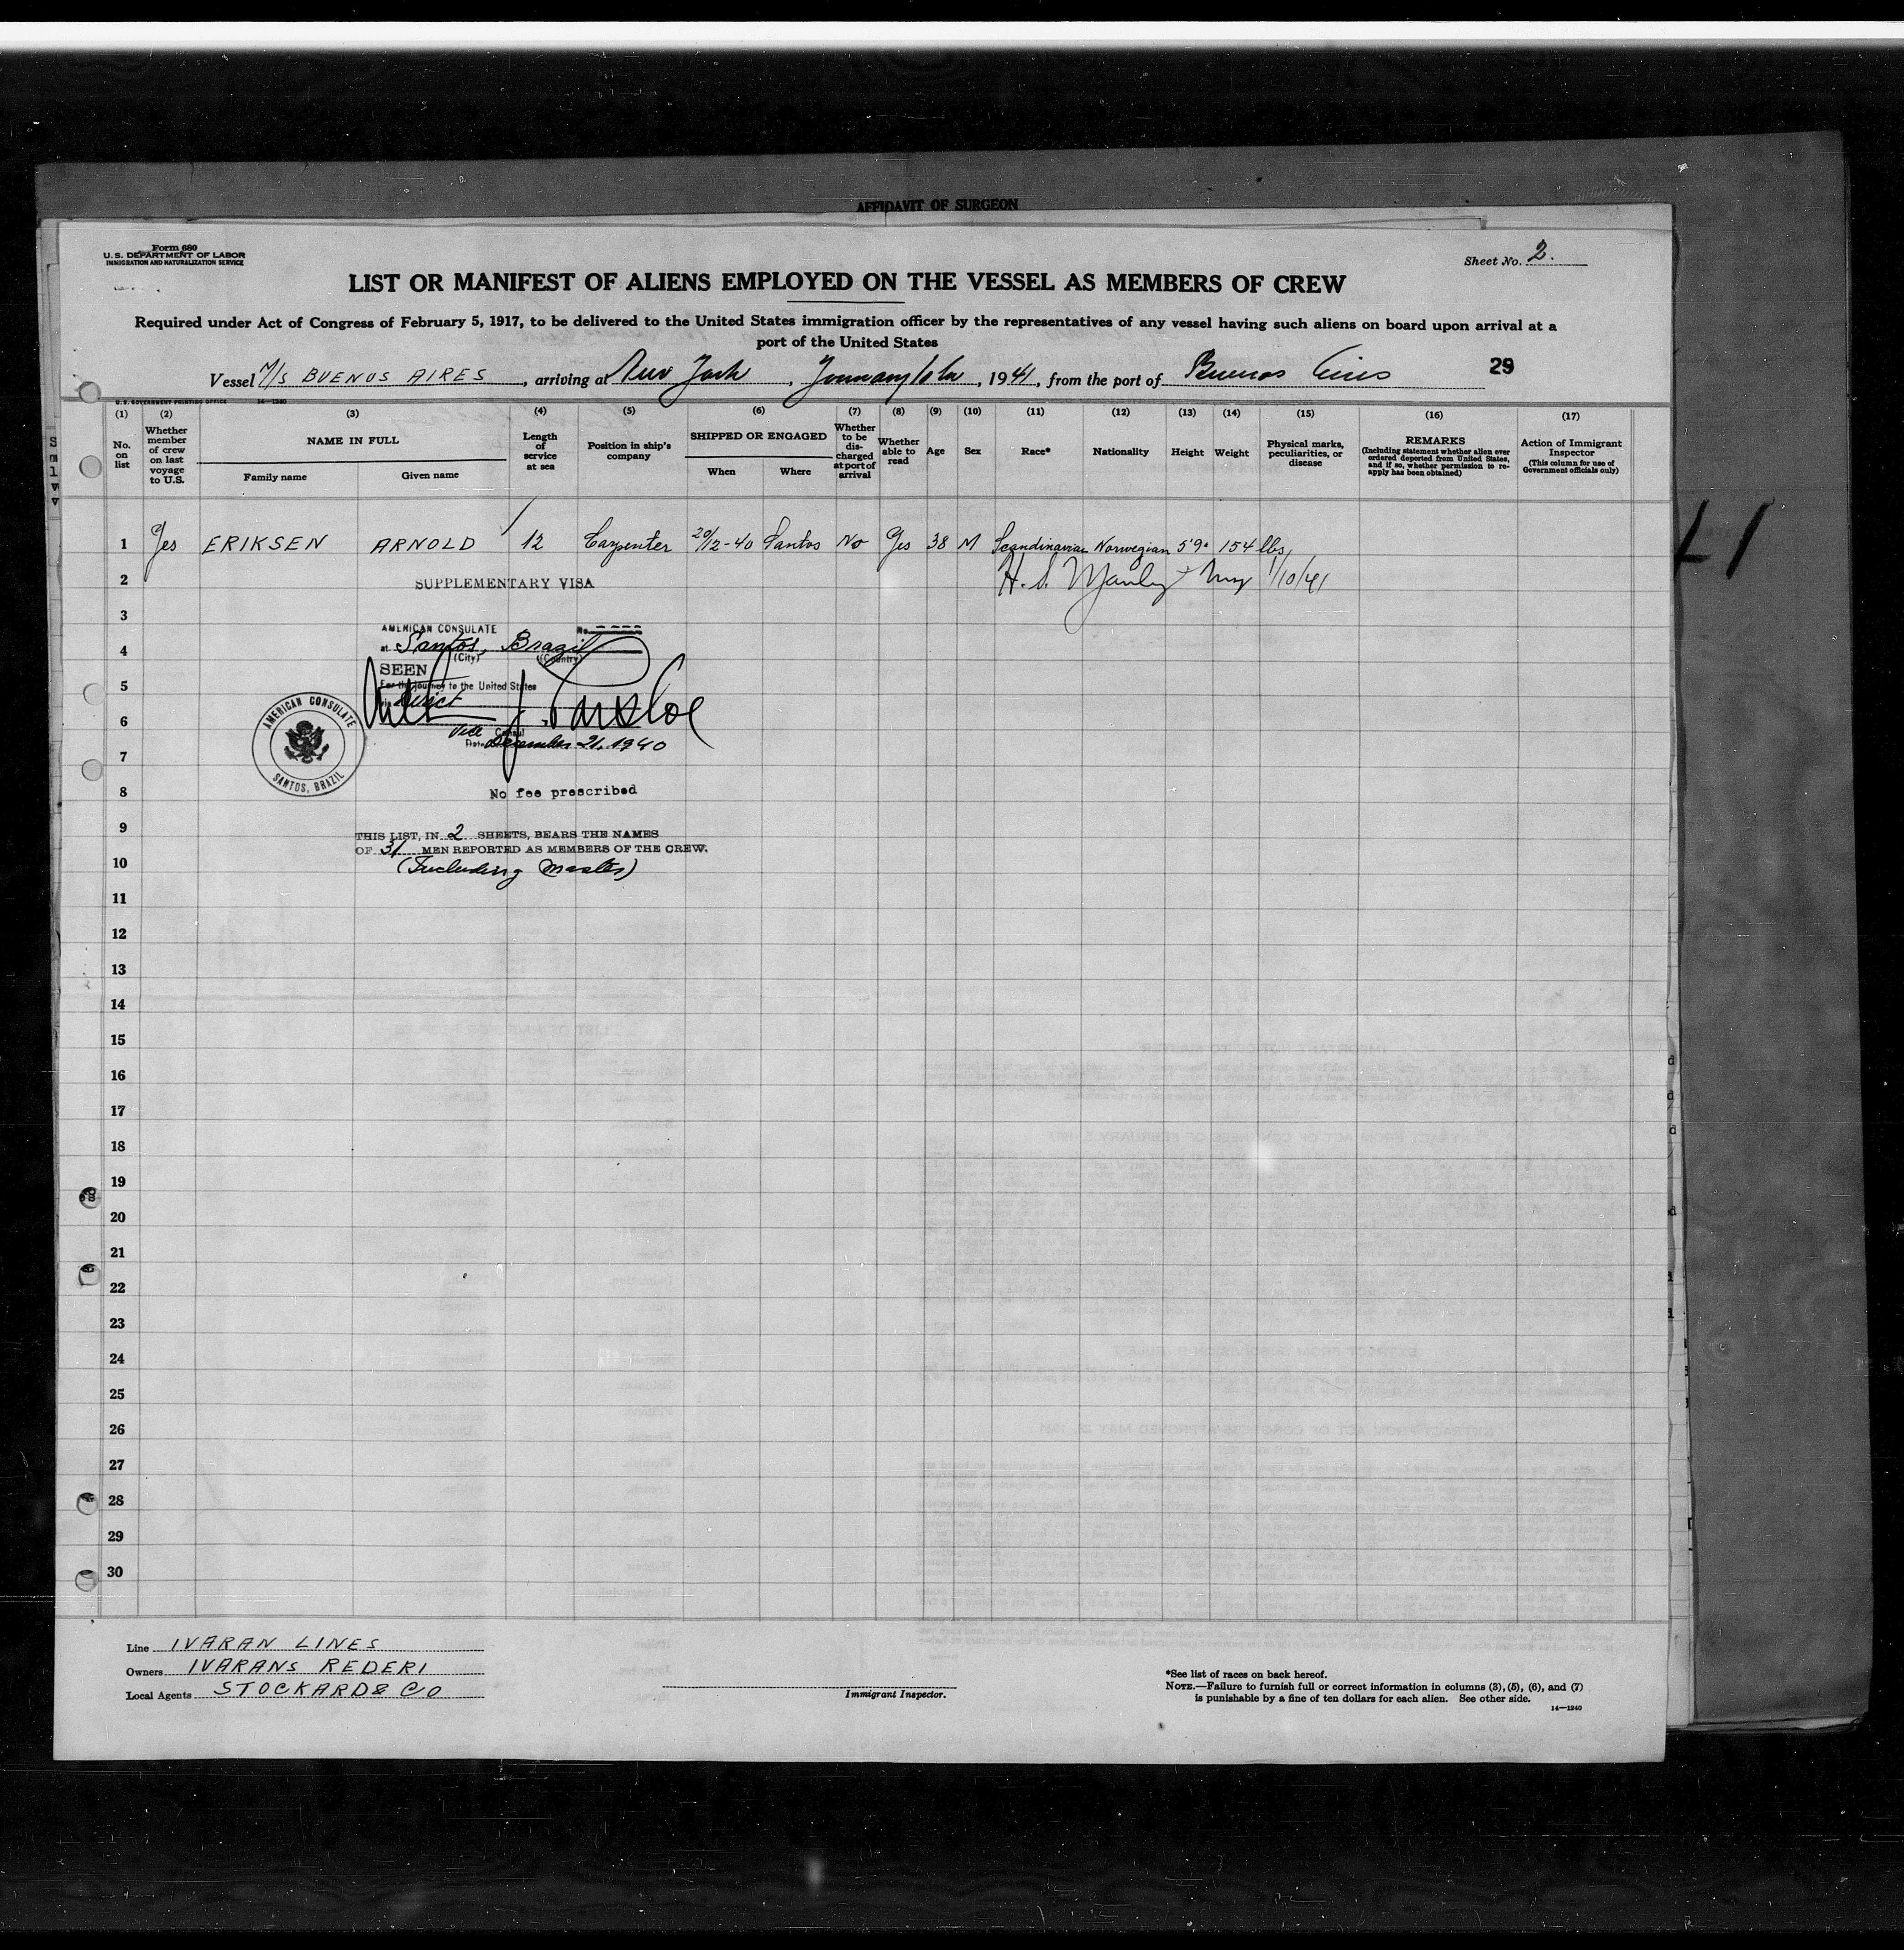 AFFIDAVIT OF SURGEON
Form 680
U. S. DEPARTMENT OF LABOR
IMMIGRATION AND NATURALIZATION SERVICE
Sheet No. 2.
LIST OR MANIFEST OF ALIENS EMPLOYED ON THE VESSEL AS MEMBERS OF CREW
Required under Act of Congress of February 5, 1917, to be delivered to the United States immigration officer by the representatives of any vessel having such aliens on board upon arrival at a
port of the United States
Vessel M/S BUENOS AIRES, arriving at New York, January, 1941, from the port of Buenos Aires
29
U. S. GOVERNMENT PRINTING OFFICE 14—1240
(1) (2) (3) (4) (5) (6) (7) (8) (9) (10) (11) (12) (13) (14) (15) (16) (17)
No. on list
Whether member of crew on last voyage to U.S.
NAME IN FULL
Family name
Given name
Length of service at sea
Position in ship's company
SHIPPED OR ENGAGED
When
Where
Whether to be discharged at port of arrival
Whether able to read
Age
Sex
Race*
Nationality
Height
Weight
Physical marks, peculiarities, or disease
REMARKS
(Including statement whether alien ever ordered deported from United States, and if so, whether permission to reapply has been obtained)
Action of Immigrant Inspector
(This column for use of Government officials only)
1 Yes ERIKSEN ARNOLD 12 Carpenter 20/12-40 Santos No Yes 38 M Scandinavian Norwegian 5'9" 154 lbs.
2 SUPPLEMENTARY VISA H. S. Manley 1/10/41
3
AMERICAN CONSULATE No.
4 at Santos, Brazil
(City) (Country)
SEEN
5 For the journey to the United States
via direct
6
Vice Consul
Date December 21, 1940
AMERICAN CONSULATE
SANTOS, BRAZIL
7
8 No fee prescribed
9 THIS LIST, IN 2 SHEETS, BEARS THE NAMES
OF 31 MEN REPORTED AS MEMBERS OF THE CREW.
10 (Including Master)
11
12
13
14
15
16
17
18
19
20
21
22
23
24
25
26
27
28
29
30
Line IVARAN LINES
Owners IVARANS REDERI
Local Agents STOCKARD & CO
Immigrant Inspector.
*See list of races on back hereof.
NOTE.—Failure to furnish full or correct information in columns (3), (5), (6), and (7)
is punishable by a fine of ten dollars for each alien. See other side.
14—1240